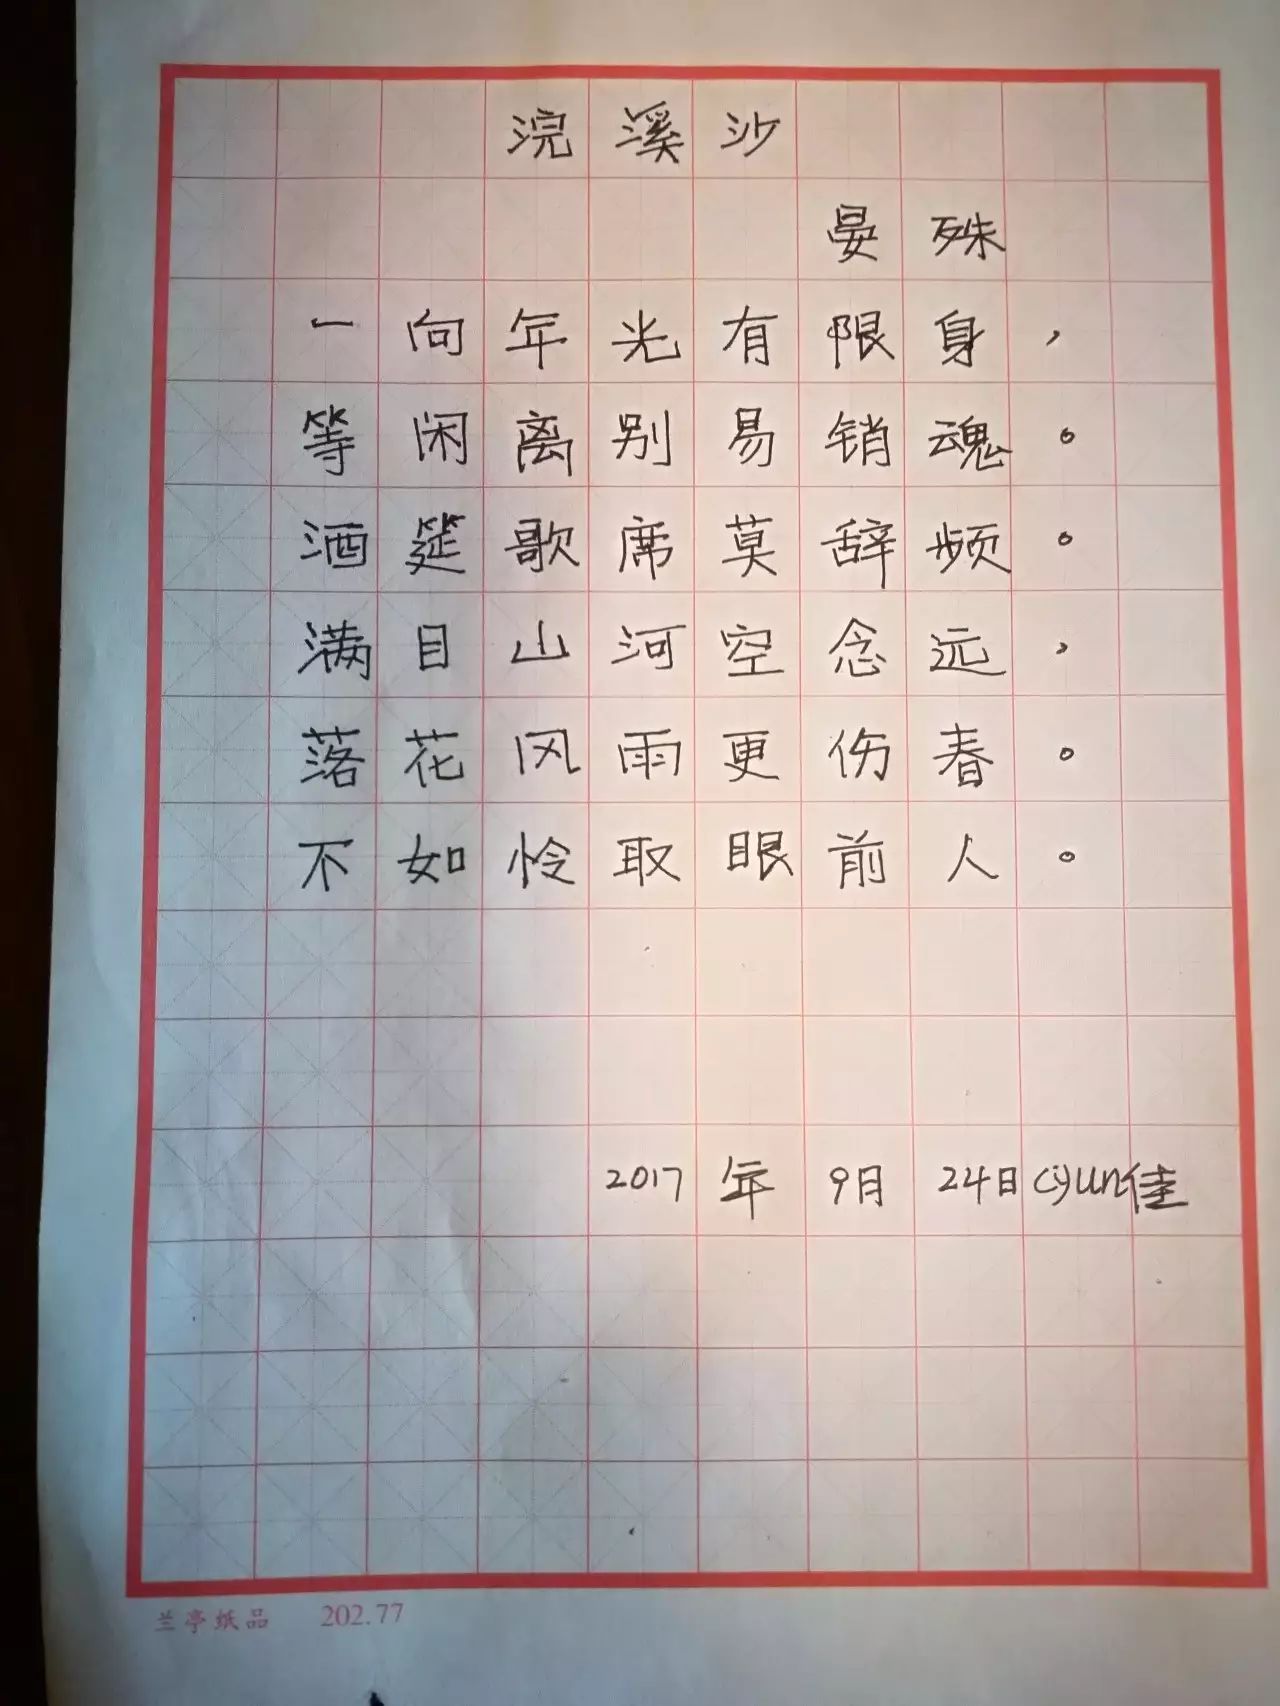 浣溪沙
晏殊
一向年光有限身，
等闲离别易销魂。
酒筵歌席莫辞频。
满目山河空念远，
落花风雨更伤春。
不如怜取眼前人。
2017年9月24日cyun佳
兰亭纸品 202.77